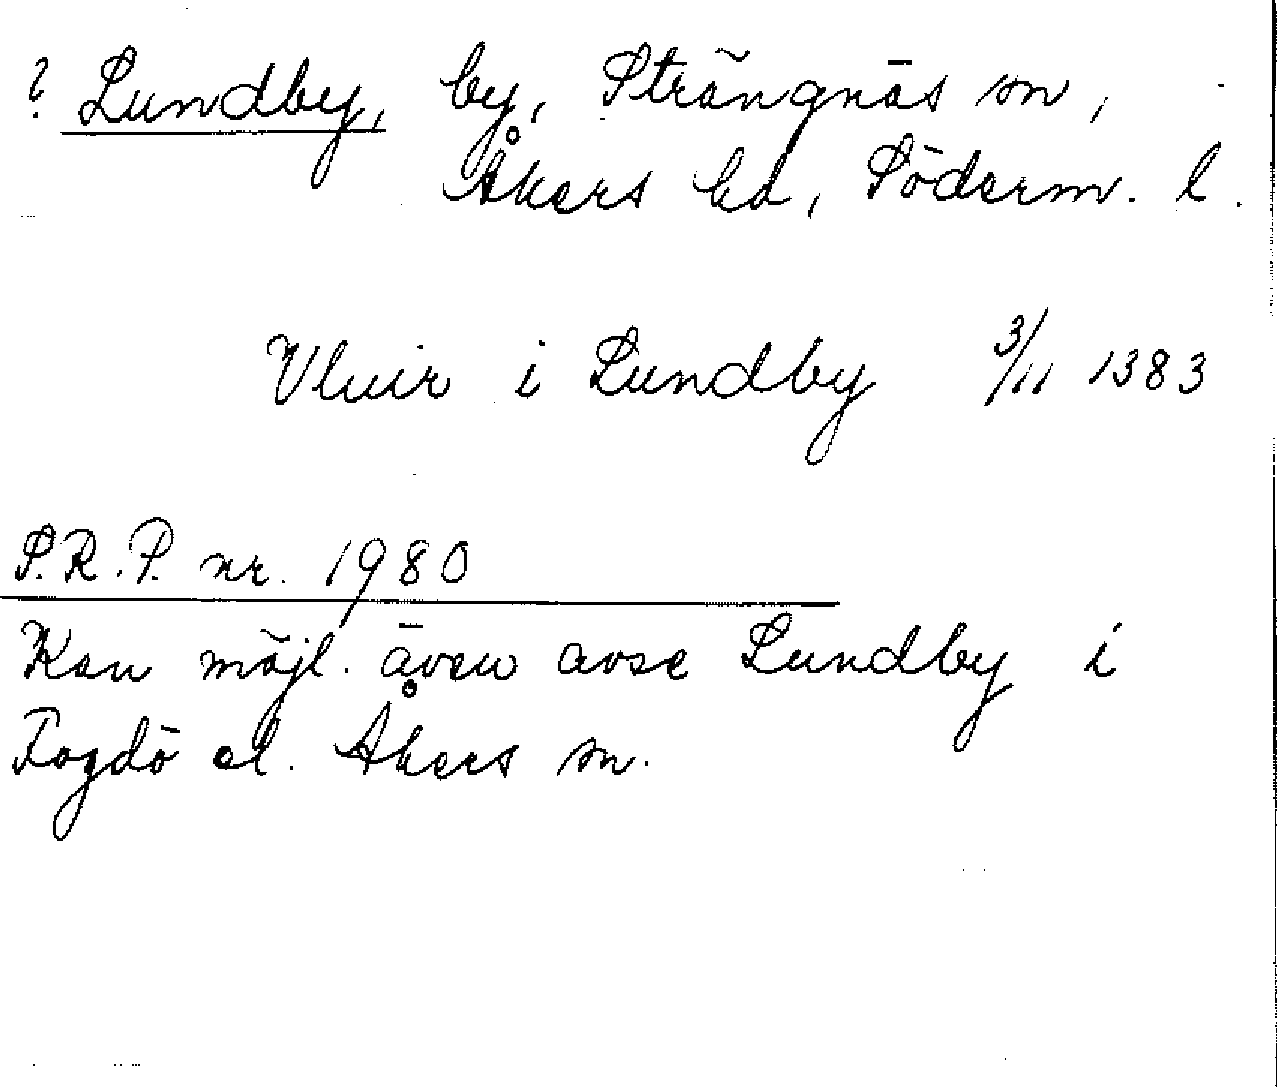 ? Lundby, by, Strängnäs sn,
Åkers hd, Söderm. l.
Vluir i Lundby 3/11 1383
S.R.P. nr. 1980
Kan möjl. även avse Lundby i
Fogdö el. Åkers sn.